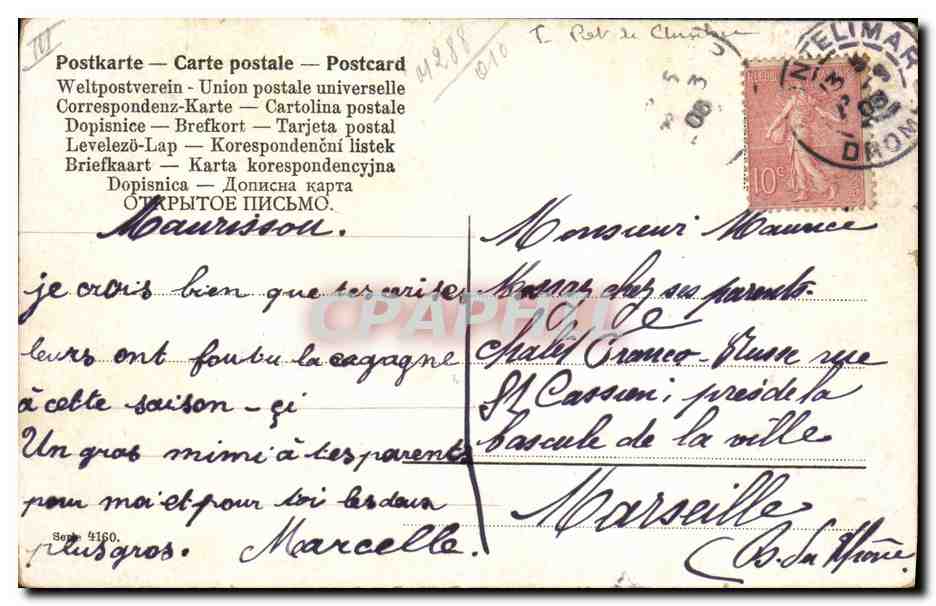 III
4288
010
Postkarte — Carte postale — Postcard
Weltpostverein - Union postale universelle
Correspondenz-Karte — Cartolina postale
Dopisnice — Brefkort — Tarjeta postal
Levelező-Lap — Korespondenční listek
Briefkaart — Karta korespondencyjna
Dopisnica — Дописна карта
ОТКРЫТОЕ ПИСЬМО.
10c
DROM
Maurissou.
je crois bien que tes cerise
leurs ont foutu la cagagne
à cette saison - çi
Un gros mimi à tes parents
pour moi et pour toi les deux
plus gros. Marcelle.
Serie 4160.
Monsieur Maurice
chez ses parents
Chalet Franco-Russe rue
St Cassien, près de la
bascule de la ville
Marseille
B. du Rhône
CPAPHIL